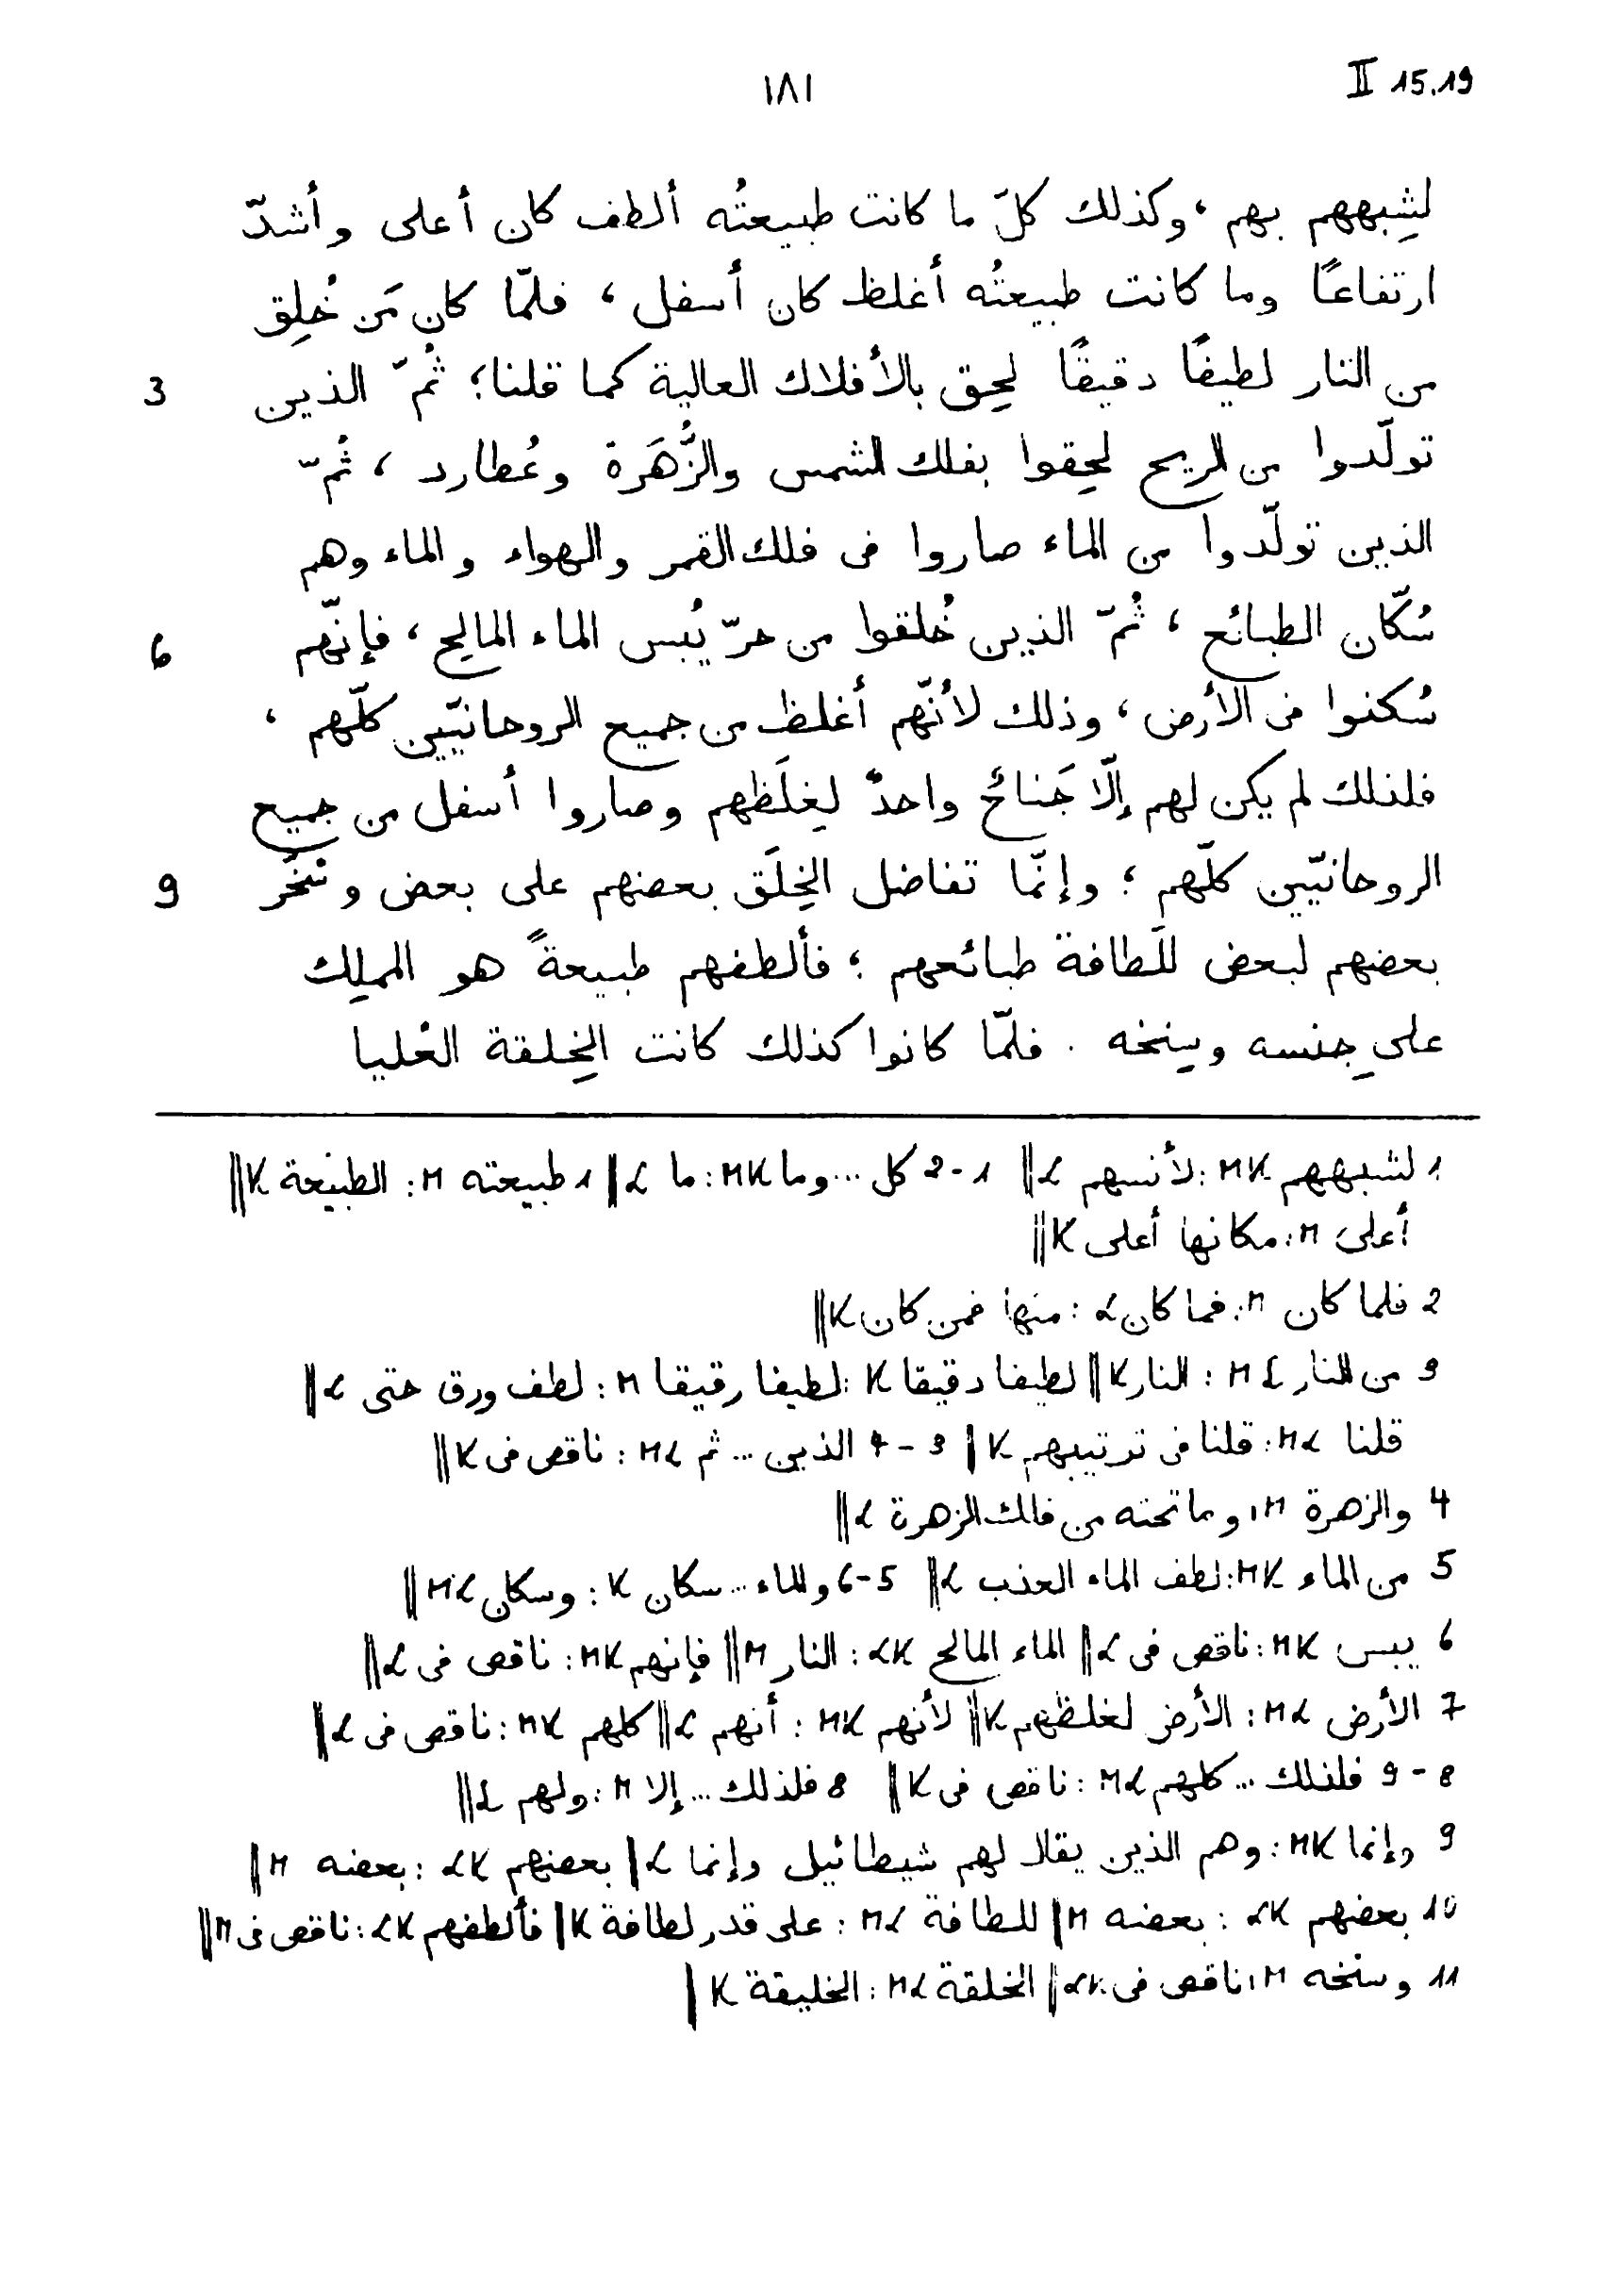 ١٨١ II 15.19
لشِبههم بهم، وكذلك كلّ ما كانت طبيعتُه ألطف كان أعلى وأشدّ
ارتفاعًا وما كانت طبيعتُه أغلظ كان أسفل، فلمّا كان مَن خُلِق
من النار لطيفًا دقيقًا لحِق بالأفلاك العالية كما قلنا؛ ثُمّ الذين 3
تولّدوا من الريح لحِقوا بفلك الشمس والزُّهَرة وعُطارد، ثُمّ
الذين تولّدوا من الماء صاروا فى فلك القمر والهواء والماء وهم
سُكّان الطبائع، ثُمّ الذين خُلقوا من حرّ يُبس الماء المالِح، فإنّهم 6
سُكنوا فى الأرض، وذلك لأنّهم أغلظ من جميع الروحانيّين كلّهم،
فلذلك لم يكن لهم إلّا جَناحٌ واحدٌ لغِلَظهم وصاروا أسفل من جميع
الروحانيّين كلّهم؛ وإنّما تفاضل الخِلَق بعضهم على بعض وسُخّر 9
بعضهم لبعض للَطافة طبائعهم؛ فألطفهم طبيعةً هو المملِك
على جِنسه وسِنخه. فلمّا كانوا كذلك كانت الخِلقة العُليا
1 لشبههم MK: لأنسهم L ‖ 1-2 كل ... وما MK: ما L ‖ 1 طبيعته M: الطبيعة K ‖
أعلى M: مكانها أعلى K ‖
2 فلما كان M: فما كان L: منها فمن كان K ‖
3 من النار ML: النار K ‖ لطيفا دقيقا K: لطيفا رقيقا M: لطف ورق حتى L ‖
قلنا ML: قلنا فى ترتيبهم K ‖ 3-4 الذين ... ثم ML: ناقص فى K ‖
4 والزهرة M: وما تحته من فلك الزهرة L ‖
5 من الماء MK: لطف الماء العذب L ‖ 5-6 والماء ... سكان K: وسكان ML ‖
6 يبس MK: ناقص فى L ‖ الماء المالح LK: النار M ‖ فإنهم MK: ناقص فى L ‖
7 الأرض ML: الأرض لغلظهم K ‖ لأنهم MK: أنهم L ‖ كلهم MK: ناقص فى L ‖
8-9 فلذلك ... كلهم ML: ناقص فى K ‖ 8 فلذلك ... إلا M: ولهم L ‖
9 وإنما MK: وهم الذين يقال لهم شيطائيل وإنما L ‖ بعضهم LK: بعضه M ‖
10 بعضهم LK: بعضه M ‖ للطافة ML: على قدر لطافة K ‖ فألطفهم LK: ناقص فى M ‖
11 وسنخه M: ناقص فى LK ‖ الخلقة ML: الخليقة K ‖